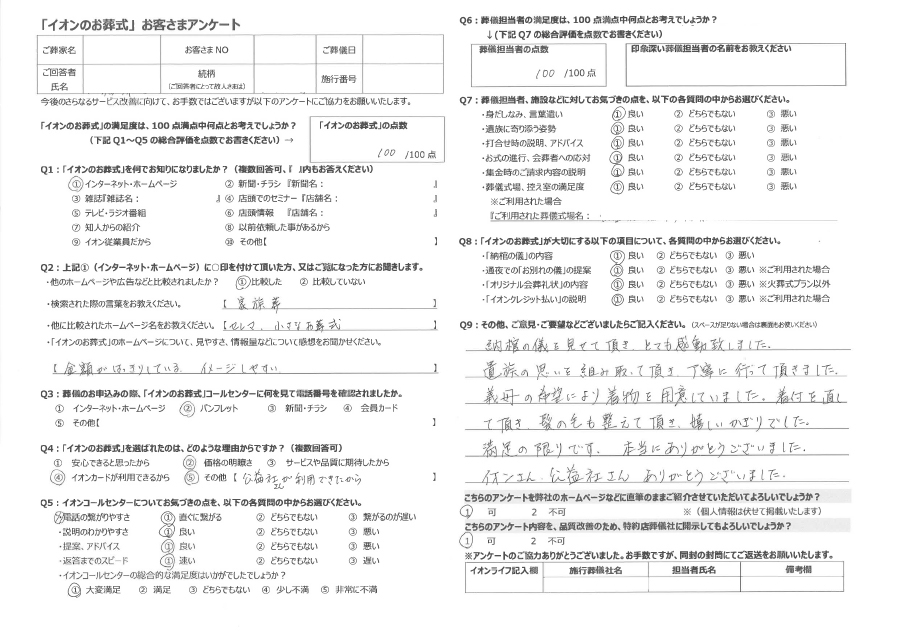 「イオンのお葬式」お客さまアンケート
ご葬家名 お客さまNO ご葬儀日
ご回答者氏名 続柄(ご回答者にとって故人さまは) 施行番号
今後のさらなるサービス改善に向けて、お手数ではございますが以下のアンケートにご協力をお願いいたします。
「イオンのお葬式」の満足度は、100点満点中何点とお考えでしょうか?
(下記Q1~Q5の総合評価を点数でお書きください)→
「イオンのお葬式」の点数
100 /100点
Q1:「イオンのお葬式」を何でお知りになりましたか?(複数回答可、『 』内もお答えください)
① インターネット・ホームページ ② 新聞・チラシ『新聞名: 』
③ 雑誌『雑誌名: 』 ④ 店頭でのセミナー『店舗名: 』
⑤ テレビ・ラジオ番組 ⑥ 店頭情報 『店舗名: 』
⑦ 知人からの紹介 ⑧ 以前依頼した事があるから
⑨ イオン従業員だから ⑩ その他【 】
Q2:上記①(インターネット・ホームページ)に○印を付けて頂いた方、又はご覧になった方にお聞きします。
・他のホームページや広告などと比較されましたか? ① 比較した ② 比較していない
・検索された際の言葉をお教えください。 【 家族葬 】
・他に比較されたホームページ名をお教えください。【セレマ、小さなお葬式 】
・「イオンのお葬式」のホームページについて、見やすさ、情報量などについて感想をお聞かせください。
【 金額がはっきりしている イメージしやすい 】
Q3:葬儀のお申込みの際、「イオンのお葬式」コールセンターに何を見て電話番号を確認されましたか。
① インターネット・ホームページ ② パンフレット ③ 新聞・チラシ ④ 会員カード
⑤ その他【 】
Q4:「イオンのお葬式」を選ばれたのは、どのような理由からですか?(複数回答可)
① 安心できると思ったから ② 価格の明瞭さ ③ サービスや品質に期待したから
④ イオンカードが利用できるから ⑤ その他【 公益社さんが利用できたから 】
Q5:イオンコールセンターについてお気づきの点を、以下の各質問の中からお選びください。
・電話の繋がりやすさ ① 直ぐに繋がる ② どちらでもない ③ 繋がるのが遅い
・説明のわかりやすさ ① 良い ② どちらでもない ③ 悪い
・提案、アドバイス ① 良い ② どちらでもない ③ 悪い
・返答までのスピード ① 速い ② どちらでもない ③ 遅い
・イオンコールセンターの総合的な満足度はいかがでしたでしょうか?
① 大変満足 ② 満足 ③ どちらでもない ④ 少し不満 ⑤ 非常に不満
Q6:葬儀担当者の満足度は、100点満点中何点とお考えでしょうか?
↓(下記Q7の総合評価を点数でお書きください)
葬儀担当者の点数
100 /100点
印象深い葬儀担当者の名前をお教えください
Q7:葬儀担当者、施設などに対してお気づきの点を、以下の各質問の中からお選びください。
・身だしなみ、言葉遣い ① 良い ② どちらでもない ③ 悪い
・遺族に寄り添う姿勢 ① 良い ② どちらでもない ③ 悪い
・打合せ時の説明、アドバイス ① 良い ② どちらでもない ③ 悪い
・お式の進行、会葬者への応対 ① 良い ② どちらでもない ③ 悪い
・集金時のご請求内容の説明 ① 良い ② どちらでもない ③ 悪い
・葬儀式場、控え室の満足度 ① 良い ② どちらでもない ③ 悪い
※ご利用された場合
『ご利用された葬儀式場名:
Q8:「イオンのお葬式」が大切にする以下の項目について、各質問の中からお選びください。
・「納棺の儀」の内容 ① 良い ② どちらでもない ③ 悪い
・通夜での「お別れの儀」の提案 ① 良い ② どちらでもない ③ 悪い ※ご利用された場合
・「オリジナル会葬礼状」の内容 ① 良い ② どちらでもない ③ 悪い ※火葬式プラン以外
・「イオンクレジット払い」の説明 ① 良い ② どちらでもない ③ 悪い ※ご利用された場合
Q9:その他、ご意見・ご要望などございましたらご記入ください。(スペースが足りない場合は裏面もお使いください)
納棺の儀を見せて頂き、とても感動致しました。
遺族の思いを組み取って頂き、丁寧に行って頂きました。
義母の希望により着物を用意していました。着付を直し
て頂き、髪の毛も整えて頂き、嬉しいかぎりでした。
満足の限りです。本当にありがとうございました。
イオンさん、公益社さん ありがとうございました。
こちらのアンケートを弊社のホームページなどに直筆のままご紹介させていただいてよろしいでしょうか?
1 可 2 不可 ※(個人情報は伏せて掲載いたします)
こちらのアンケート内容を、品質改善のため、特約店葬儀社に開示してもよろしいでしょうか?
1 可 2 不可
※アンケートのご協力ありがとうございました。お手数ですが、同封の封筒にてご返送をお願いいたします。
イオンライフ記入欄 施行葬儀社名 担当者氏名 備考欄